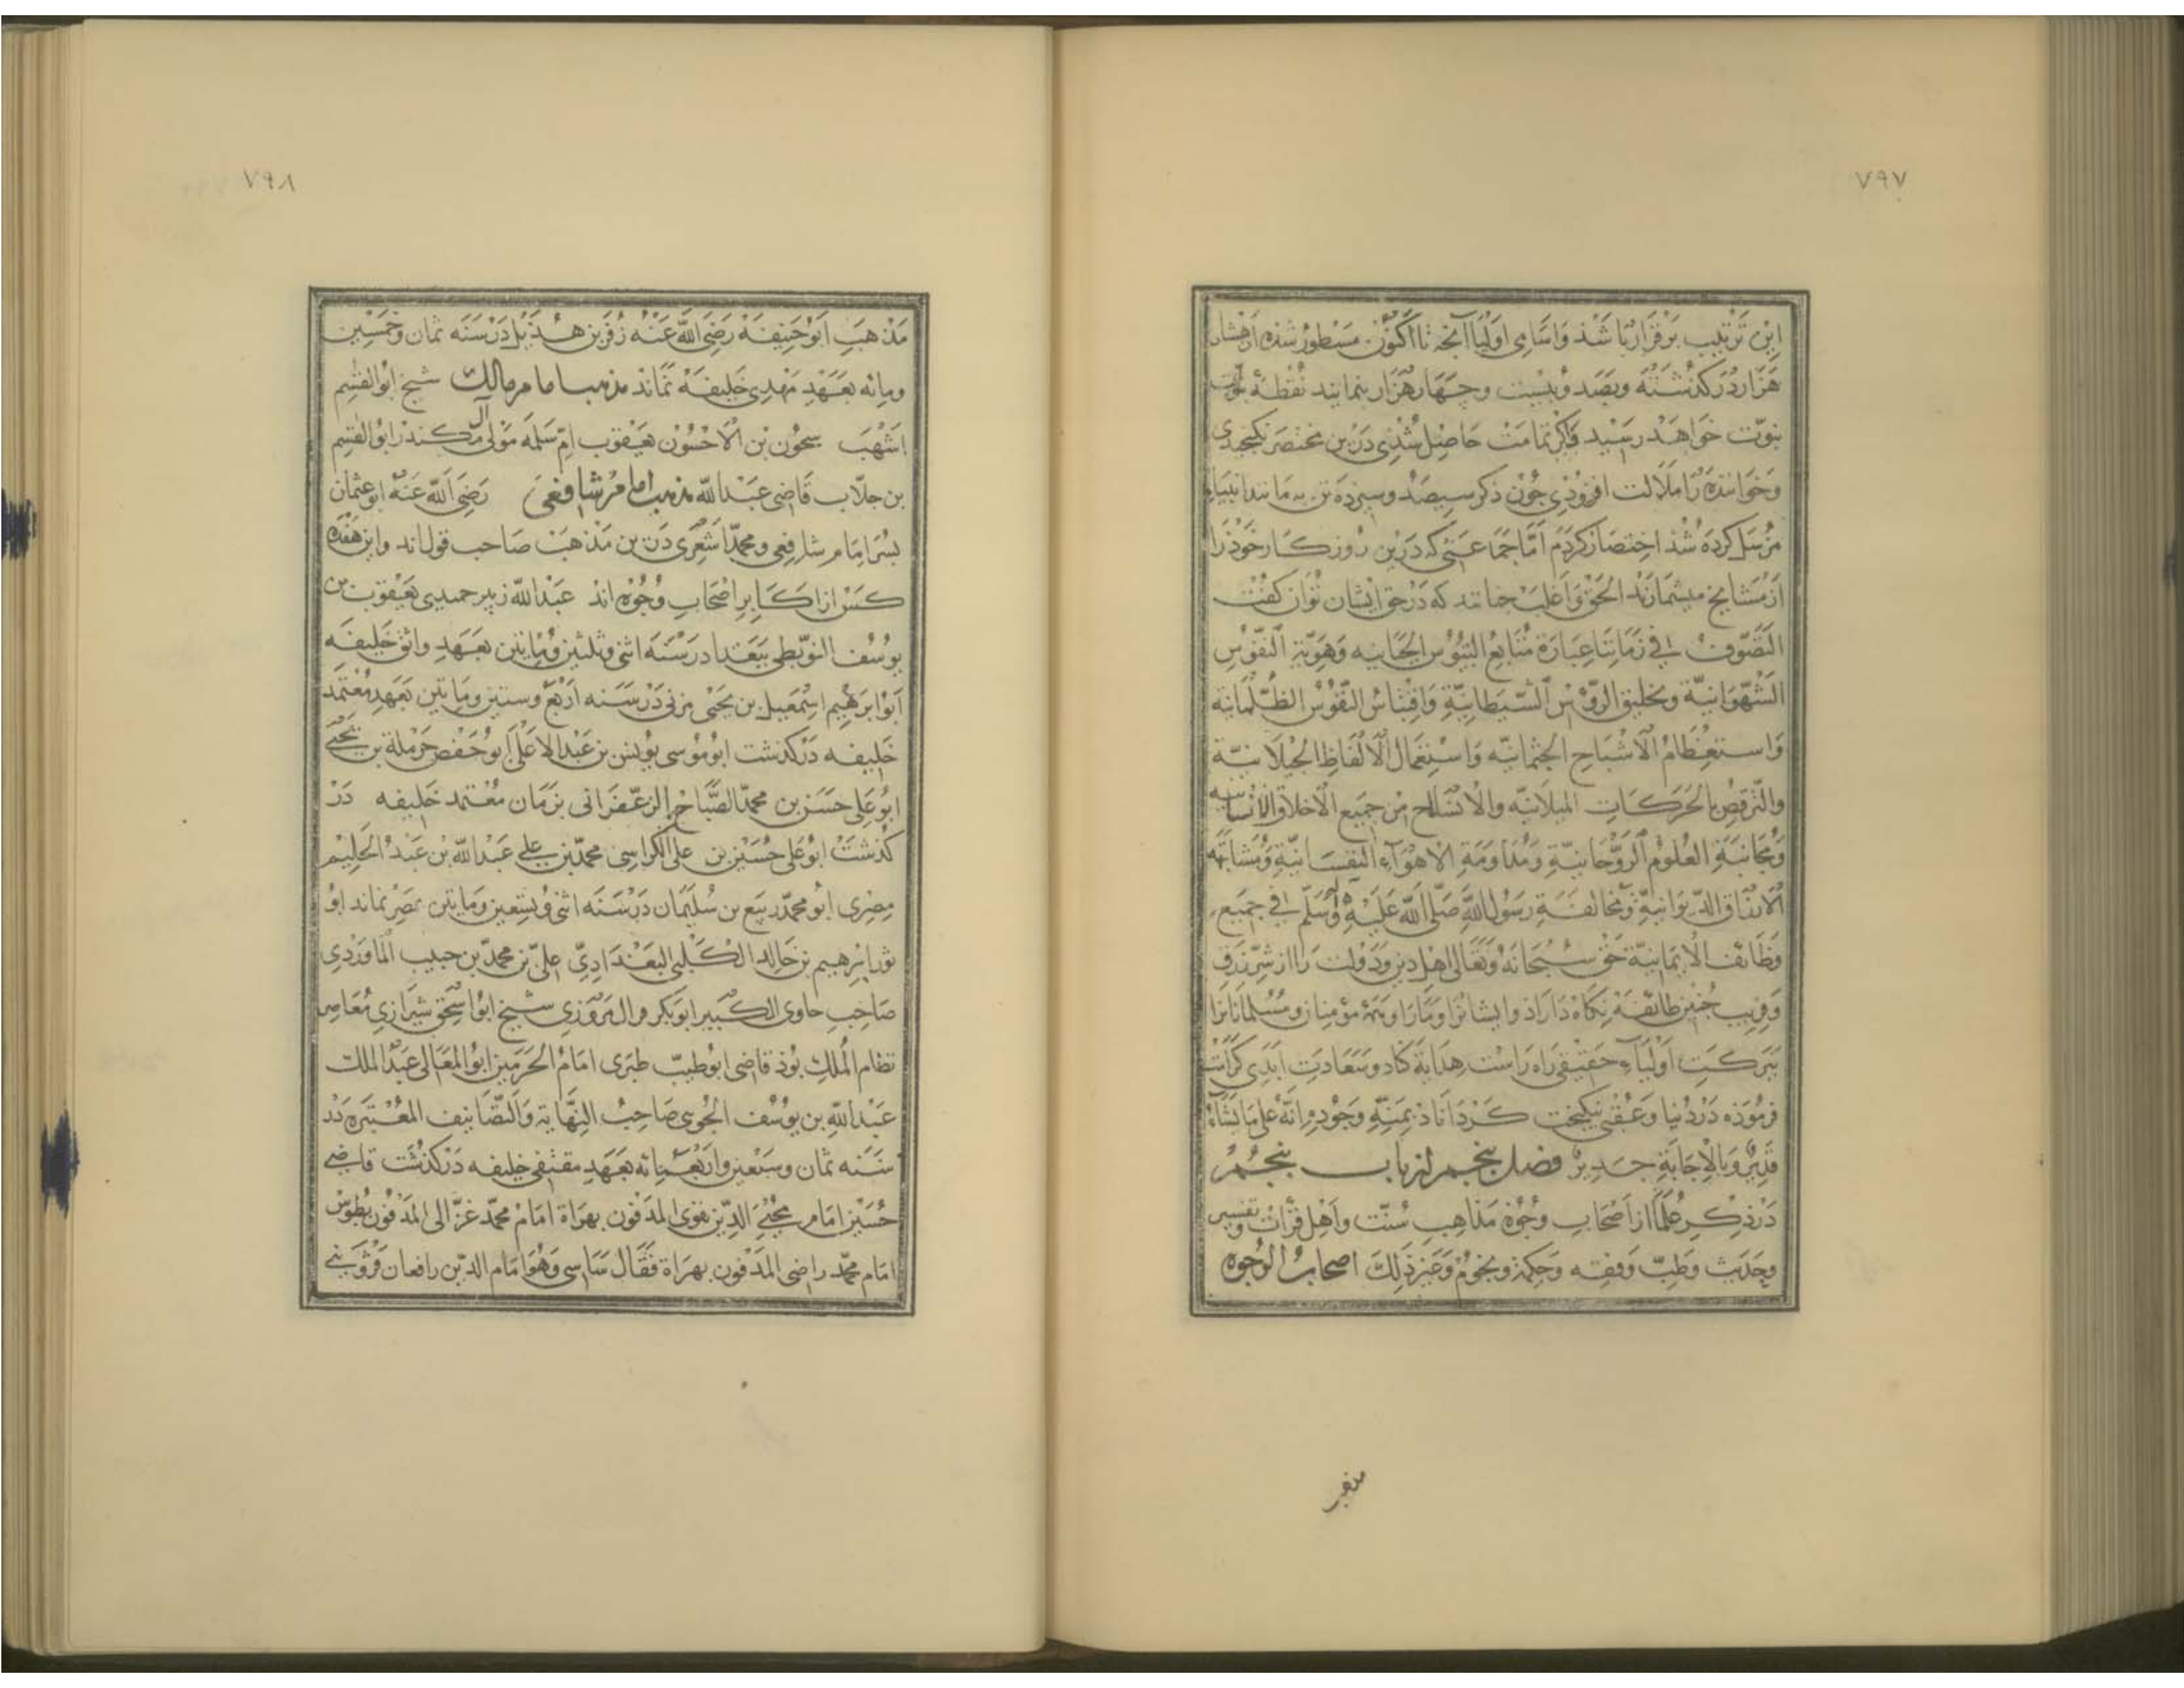 ٧٩٧
این ترتیب برقرار باشد و اسامی اولیا آنچه تا اکنون مسطور شده از هشتاد
هزار در گذشته و بصد و بیست و چهار هزار بنمایند نقطهٔ نبوت
نبوّت خواهد رسید و اگر تمامت حاصل شدی درین مختصر نگنجیدی
و خواننده را ملالت افزودی چون ذکر سیصد و سیزده تن به مانند انبیاء
مرسل کرده شد اختصار کردم امّا جماعتی که درین روزکار خوذ را
از مشایخ میشمارند الحق و اغلب چنانند که در حق ایشان توان کفت
التصوّف فی زماننا عبارة متابع
الشهوانیّة و تحلیق الرؤس الشیطانیّة و اقتباس النفوس الظلمانیه
و استعظام الاشباح الجثمانیّه و استعمال الالفاظ الجیلانیّة
والترقص بالحرکات المیلانیّه والانسلاخ من جمیع الاخلاق الانسانیه
و مجانبة العلوم الروحانیّة و مداومة الاهوآء النفسانیّة و مشابهه
الدیوانیّة و مخالفة رسول الله صلی الله علیه و آله و سلم فی جمیع
وظائف الایمانیّة حق سبحانه و تعالی اهل دین و دولت را از شرّ زرق
و فریب چنین طائفه نکاه داراد و ایشانرا و مارا و همه مؤمنان و مسلمانانرا
ببرکت اولیاء حقیقی راه راست هدایة کناد و سعادت ابدی کرامت
فرموذه در دنیا و عقبی نیکبخت کرداناذ بمنّه وجوده انّه علی ما یشاء
قدیرٌ و بالاجابة جدیرٌ فصل پنجم از باب پنجم
در ذکر علما از اصحاب وجوه مذاهب سنّت و اهل قرأت و تفسیر
و حدیث و طبّ و فقه و حکمة و نجوم و غیر ذلک اصحاب الوجوه
٧٩٨
مذهب ابو حنیفة رضی الله عنه زفر بن هذیل در سنه ثمان و خمسین
و مائه بعهد مهدی خلیفه نماند مذهب امام مالک شیخ ابوالقسم
اشهب سحون بن الاحسون یعقوب ام سلمه مولی آل ابوالقسم
بن جلّاب قاضی عبدالله مذهب امام شافعی رضی الله عنه ابو عثمان
بسر امام شافعی و محمد اشعری درین مذهب صاحب قول‌اند و این هفده
کس از اکابر اصحاب وجوه اند عبدالله زبیر حمیدی یعقوب بن
یوسف البویطی ببغداد در سنه اثنی و ثلثین و مایتین بعهد واثق خلیفه
ابو ابرهیم اسمعیل بن یحیی مزنی در سنه اربع و ستین و مایتین بعهد معتمد
خلیفه درکذشت ابو موسی یونس بن عبدالاعلی ابو حفص حرملة بن یحیی
ابو علی حسن بن محمد الصبّاح الزعفرانی بزمان معتمد خلیفه در
کذشت ابو علی حسین بن علی الکرابیسی محمد بن علی عبدالله بن عبد الحلیم
مصری ابو محمد ربیع بن سلیمان در سنه اثنی و تسعین و مایتین بمصر نماند ابو
ثور ابرهیم بن خالد الکلبی البغدادی علی بن محمد بن حبیب الماوردی
صاحب حاوی الکبیر ابوبکر المروزی شیخ ابو اسحق شیرازی معاصر
نظام الملک بوذ قاضی ابو طیب طبری امام الحرمین ابو المعالی عبد الملک
عبدالله بن یوسف الجوینی صاحب النهایة و التصانیف المعتبره در
سنه ثمان و سبعین و اربعمائه بعهد مقتفی خلیفه درکذشت قاضی
حسین امام محیی الدین بغوی المدفون بهراة امام محمد غزالی المدفون بطوس
امام محمد راضی المدفون بهراة قفال و هو امام الدین رافعان قزوینی